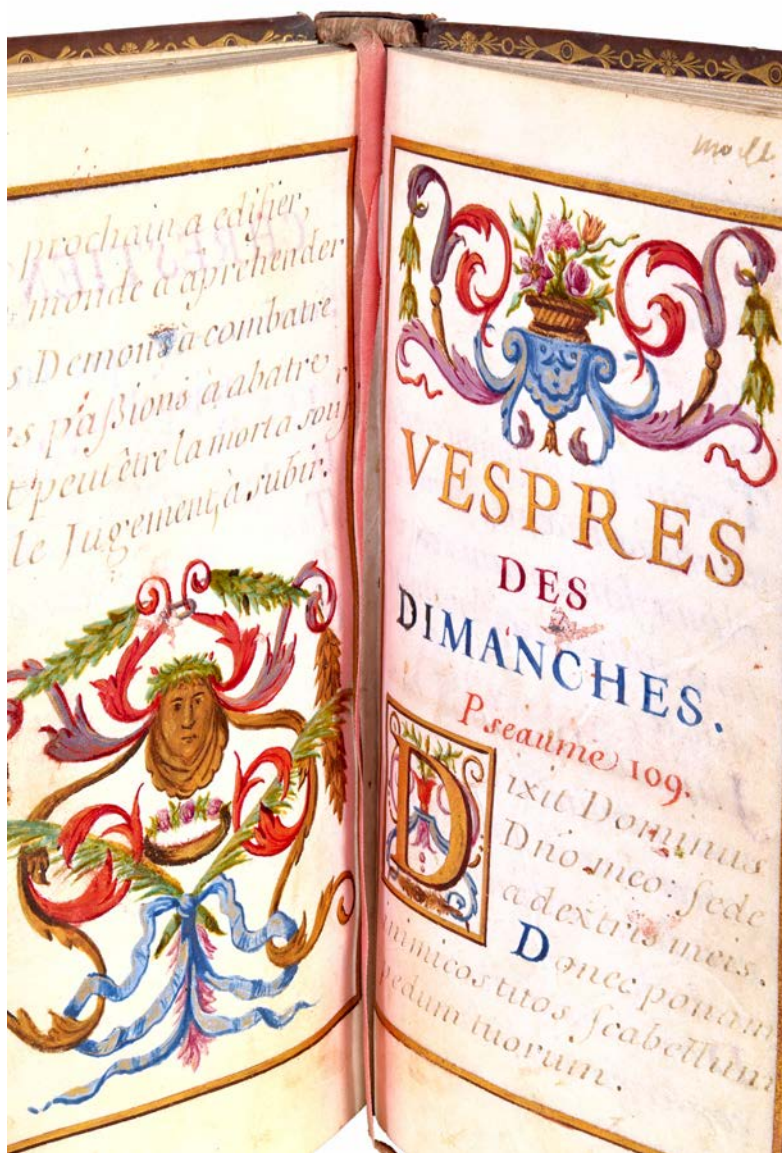 prochain a edifier,
monde a aprehender
s Demons à combatre,
es paſsions à abatre,
t peut être la mort a souf
le Jugement, à subir.
VESPRES
DES
DIMANCHES.
Pseaume 109.
Dixit Dominus
Dno meo: ſede
a dextris meis.
Donec ponam
inimicos tuos, ſcabellum
pedum tuorum.